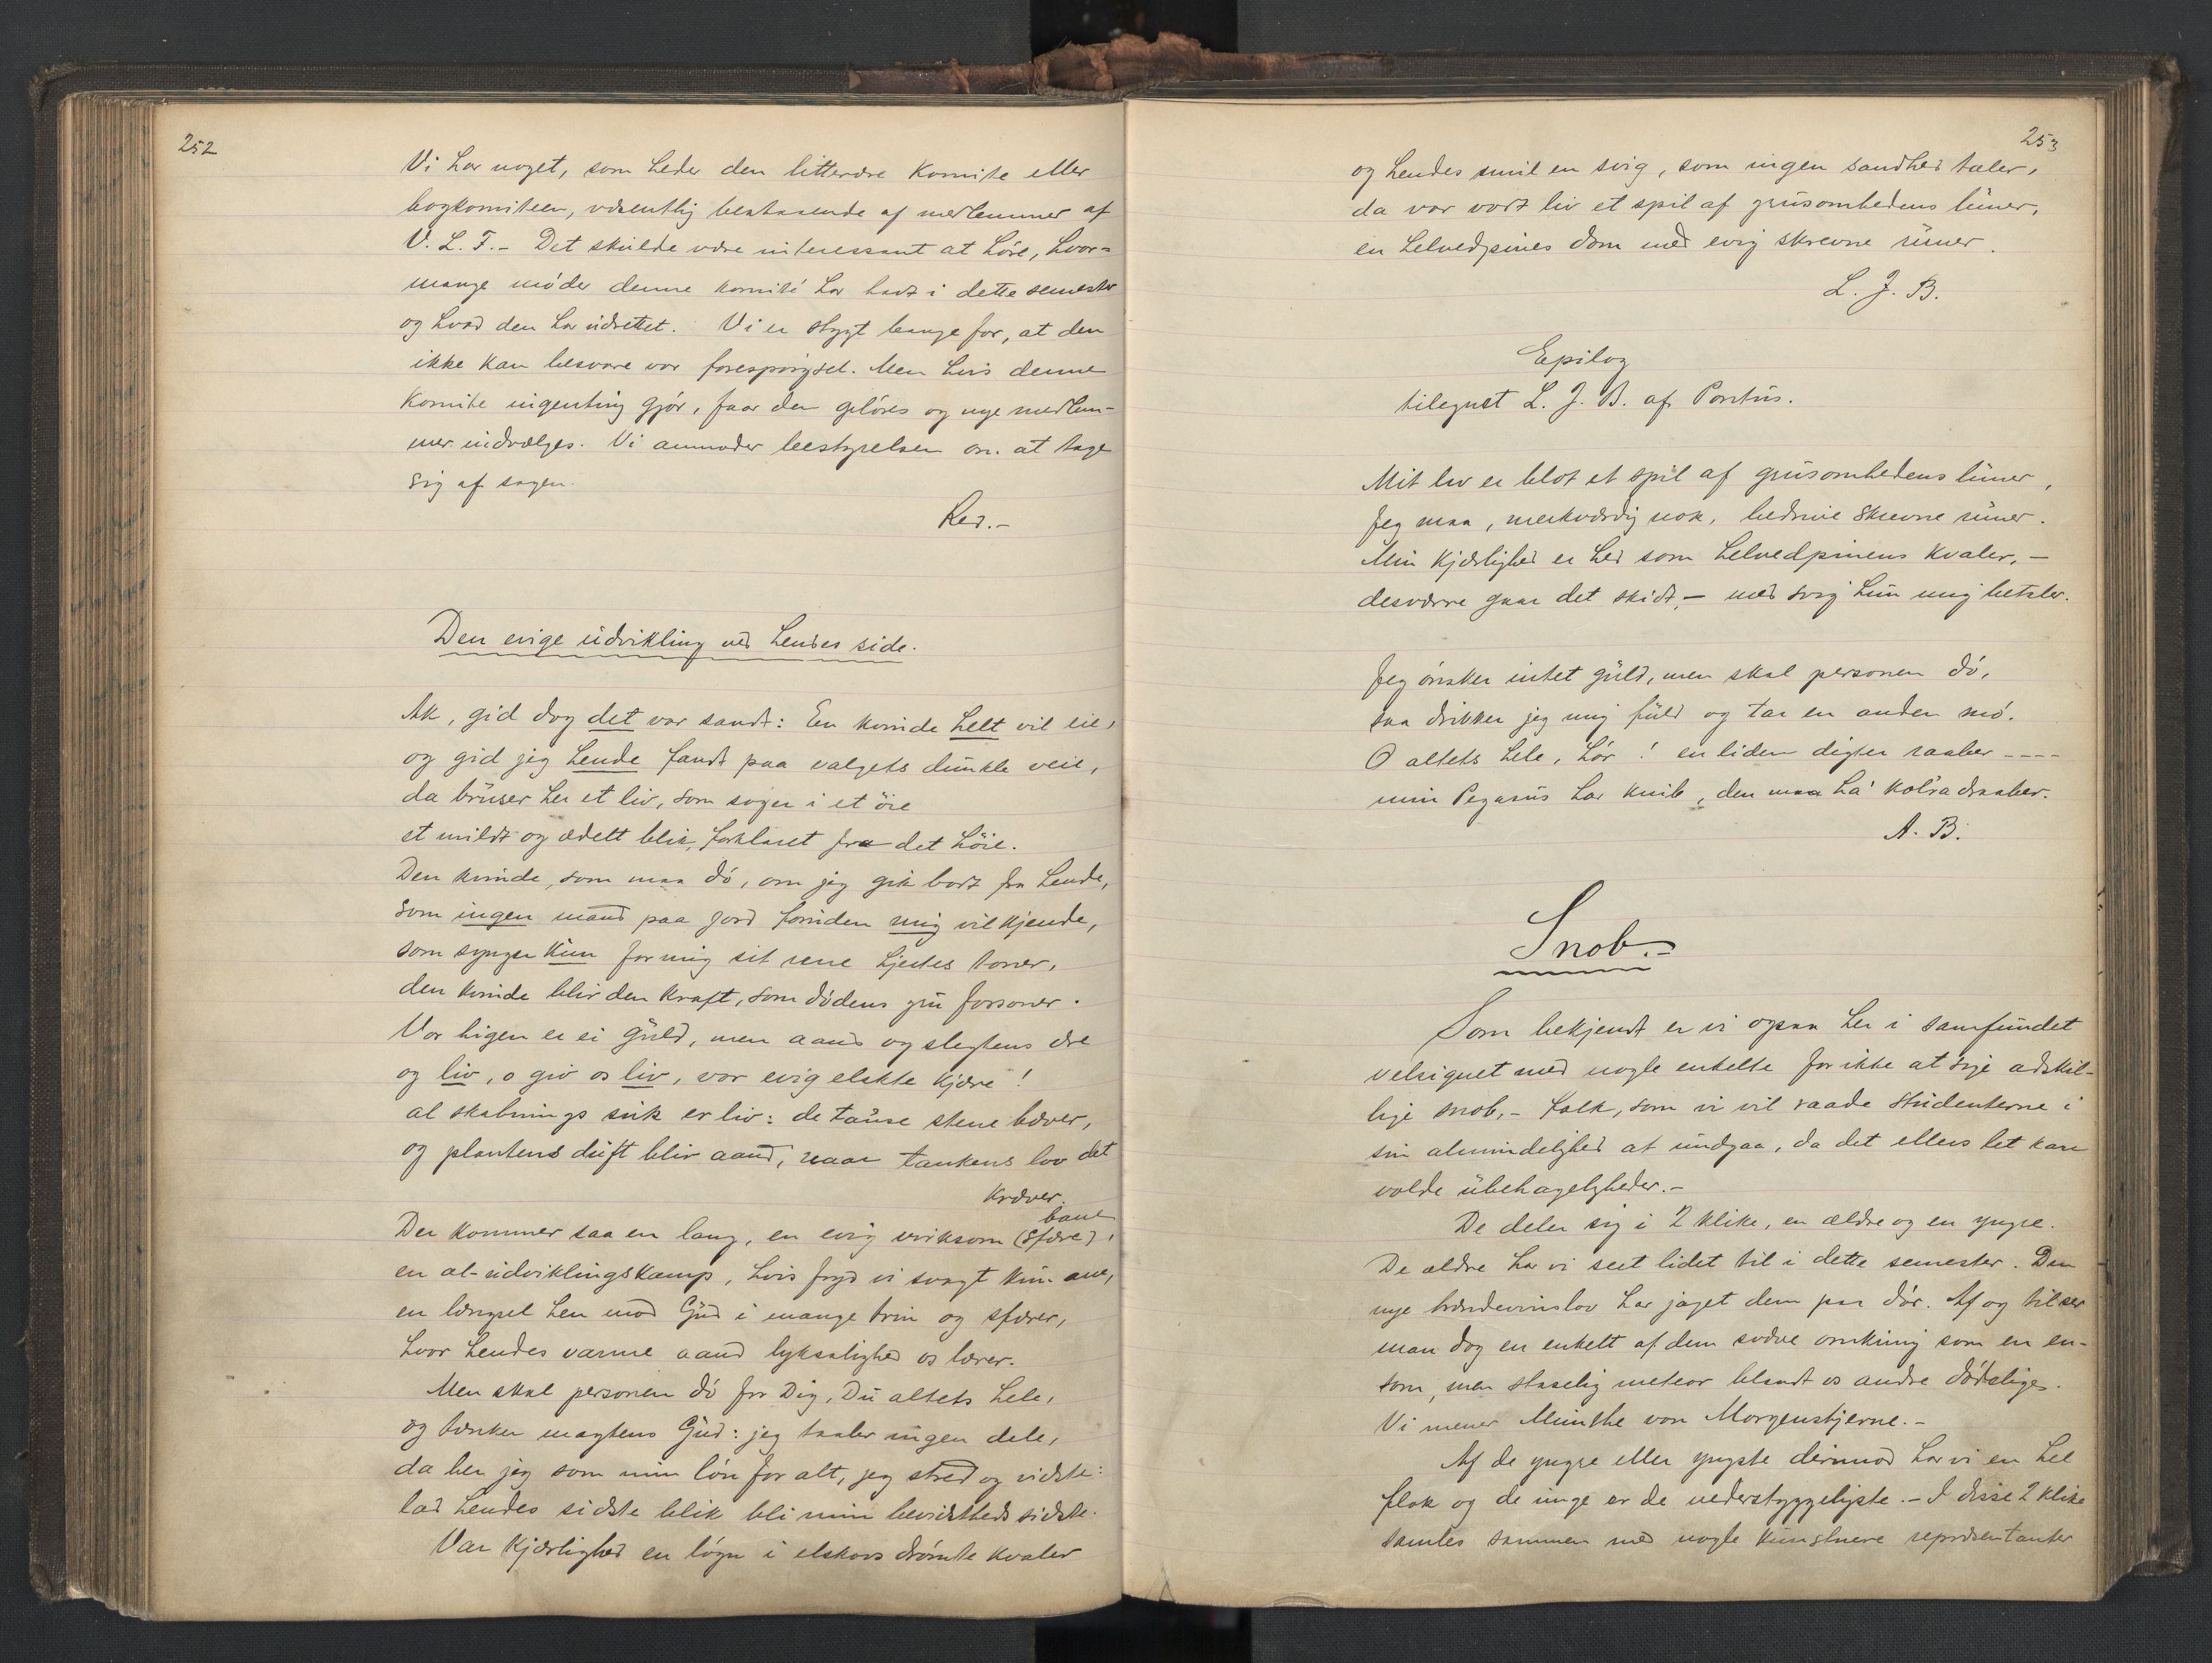 252
Vi har noget, som heder den litterære komite eller
bogkomiteen, væsentlig bestaaende af medlemmer af
V. L. F. – Det skulde være interessant at høre, hvor=
mange møder denne komité har havt i dette semester
og hvad den har udrettet. Vi er stygt bange for, at den
ikke kan besvare vor forespørgsel. Men hvis denne
komite ingenting gjør, faar den opløses og nye medlem-
mer indvælges. Vi anmoder bestyrelsen om at tage
sig af sagen.
Red. –
Den evige udvikling ved hendes side.
Ak, gid dog det var sandt: En kvinde helt vil eie,
og gid jeg hende fandt paa valgets dunkle veie,
da bruser her et liv, som suger i et øie
et mildt og ædelt blik, forklaret fra det høie.
Den kvinde, som maa dø, om jeg gik bort fra hende,
som ingen mand paa jord foruden mig vil kjende,
som synger kun for mig sit rene hjertes toner,
den kvinde blir den kraft, som dødens gru forsoner.
Vor higen er ei guld, men aand og slegtens ære
og liv, o giv os liv, vor evig elskte kjære!
al skabnings suk er liv: de tause stene bæver,
og plantens duft blir aand, naar tankens lov det
kræver.
Der kommer saa en lang, en evig virksom (sfære) bane,
en al-udviklingskamp, hvis fryd vi svagt kun ane,
en længsel hen mod Gud i mange trin og sfærer,
hvor hendes varme aand lyksalighed os lærer.
Men skal personen dø for Dig, Du altets hele,
og tænker magtens Gud: jeg taaler ingen dele,
da ber jeg som min løn for alt, jeg stred og vidste:
lad hendes sidste blik bli min bevidstheds sidste.
Var kjærlighed en løgn i elskovs drømte kvaler
253
og hendes smil en svig, som ingen sandhed taler,
da var vort liv et spil af grusomhedens luner,
en helvedpines dom med evig skrevne runer.
L. J. B.
Epilog
tilegnet L. J. B. af Pontus.
Mit liv er blot et spil af grusomhedens luner,
Jeg maa, merkværdig nok, bedrive skrevne runer.
Min kjærlighed er hed som helvedpinens kvaler, –
desværre gaar det skidt, – med svig hun mig betaler.
Jeg ønsker intet guld, men skal personen dø,
saa drikker jeg mig fuld og tar en anden mø.
O altets hele, hør! en liden digter raaber ----
min Pegasus har knib, den maa ha' koleradraaber.
A. B.
Snob. –
Som bekjendt er vi ogsaa her i samfundet
velsignet med nogle enkelte for ikke at sige adskil-
lige snob, – folk, som vi vil raade studenterne i
sin almindelighed at undgaa, da det ellers let kan
volde ubehageligheder. –
De deler sig i 2 klike, en ældre og en yngre.
De ældre har vi seet lidet til i dette semester. Den
nye brændevinslov har jaget dem paa dør. Af og til ser
man dog en enkelt af dem svæve omkring som en en-
som, men staselig meteor blandt os andre dødelige.
Vi mener Munthe von Morgenstjerne. –
Af de yngre eller yngste derimod har vi en hel
flok og de unge er de vederstyggeligste. – I disse 2 klike
samles sammen med nogle kunstnere repræsentanter